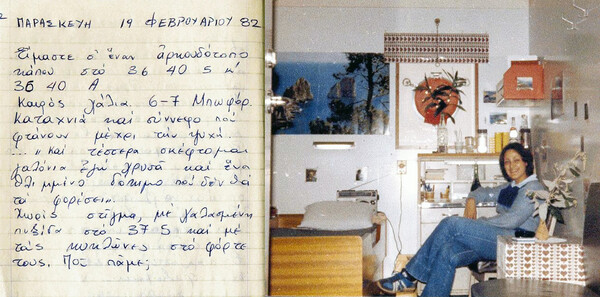 ΠΑΡΑΣΚΕΥΗ 19 ΦΕΒΡΟΥΑΡΙΟΥ 82
Είμαστε σ' έναν αρκουδότοπο
κάπου στό 36 40 S κ'
36 40 Α
Καιρός χάλια. 6-7 Μπωφόρ.
Καταχνιά καί σύννεφο πού
φτάνουν μέχρι τήν ψυχή.
... "καί τέσσερα σκέφτομαι
γαλόνια εγώ χρυσά καί ένα
θλιμμένο δόκιμο πού δέν θά
τά φορέσει".
Χωρίς στίγμα, μέ χαλασμένη
πυξίδα στό 37 S καί μέ
τούς κυκλώνες στό φόρτε
τους. Πού πάμε;